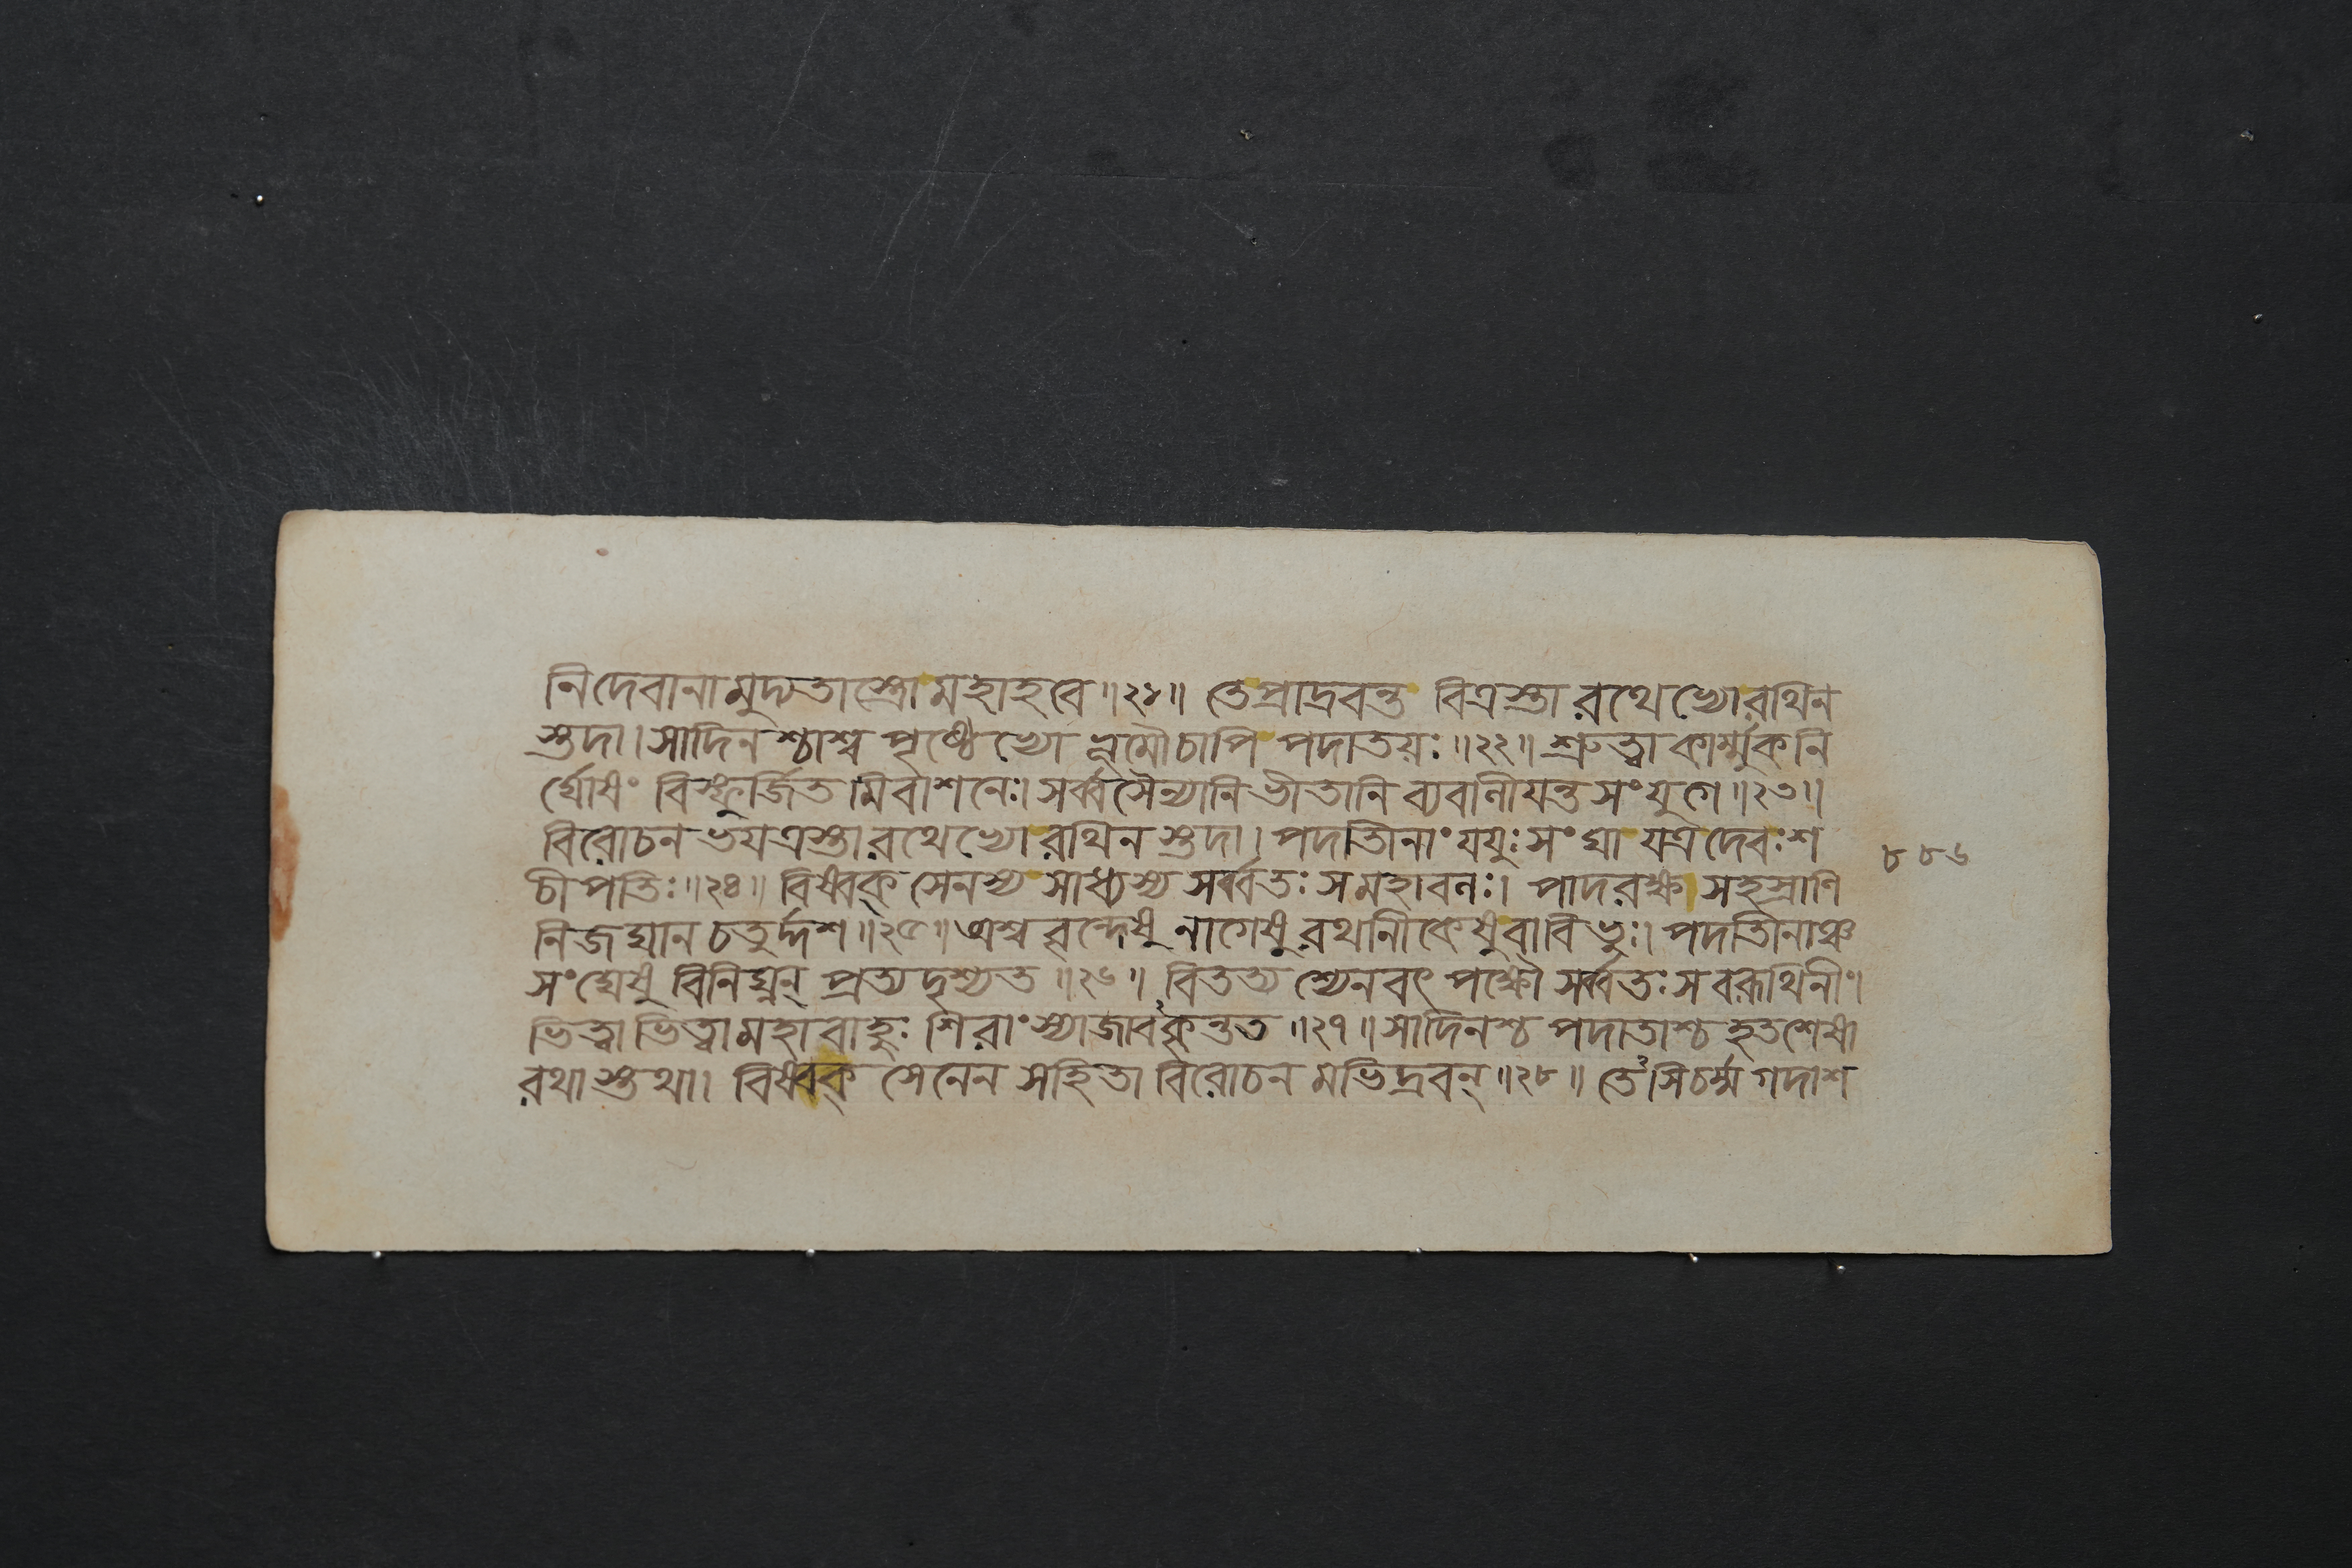 নিদেবানামুদ্যতাস্ত্রোমহাহবে॥২১॥ তেপ্রাদ্রবন্ত বিত্রস্তা রথেভ্যোরথিন
স্তদা।সাদিনশ্চাশ্ব পৃষ্ঠেভ্যো ভূমৌচাপি পদাতয়ঃ॥২২॥ শ্রুত্বা কার্ম্মুকনি
র্ঘোষং বিস্ফূর্জিতমিবাশনেঃ।সর্ব্বসৈন্যানিভীতানি ব্যবালীযন্তসংযুগে॥২৩॥
বিরোচনভযত্রস্তারথেভ্যোরথিনস্তদা।পদাতিনাং যযুঃসংঘা যত্রদেবঃশ
চীপতিঃ॥২৪॥ বিষ্বক্সেনস্য সাধ্যস্য সর্ব্বতঃসমহাবলঃ। পাদরক্ষসহস্রাণি
নিজঘান চতুর্দ্দশ॥২৫॥অশ্ববৃন্দেষু নাগেষু রথানীকেষুবাবিভুঃ।পদাতিনাঞ্চ
সংঘেষু বিনিঘ্নন্ প্রত্যদৃশ্যত॥২৬॥ বিতত্য শ্যেনবৎ পক্ষৌ সর্ব্বতঃসবরূথিনীং।
ভিত্বাভিত্বামহাবাহুঃ শিরাংস্যাজাবকৃন্তত॥২৭॥সাদিনশ্চ পদাতাশ্চ হতশেষা
রথাস্তথা। বিষ্বক্ সেনেন সহিতা বিরোচনমভিদ্রবন্॥২৮॥ তেঽসিচর্ম্মগদাশ
৮৮৬